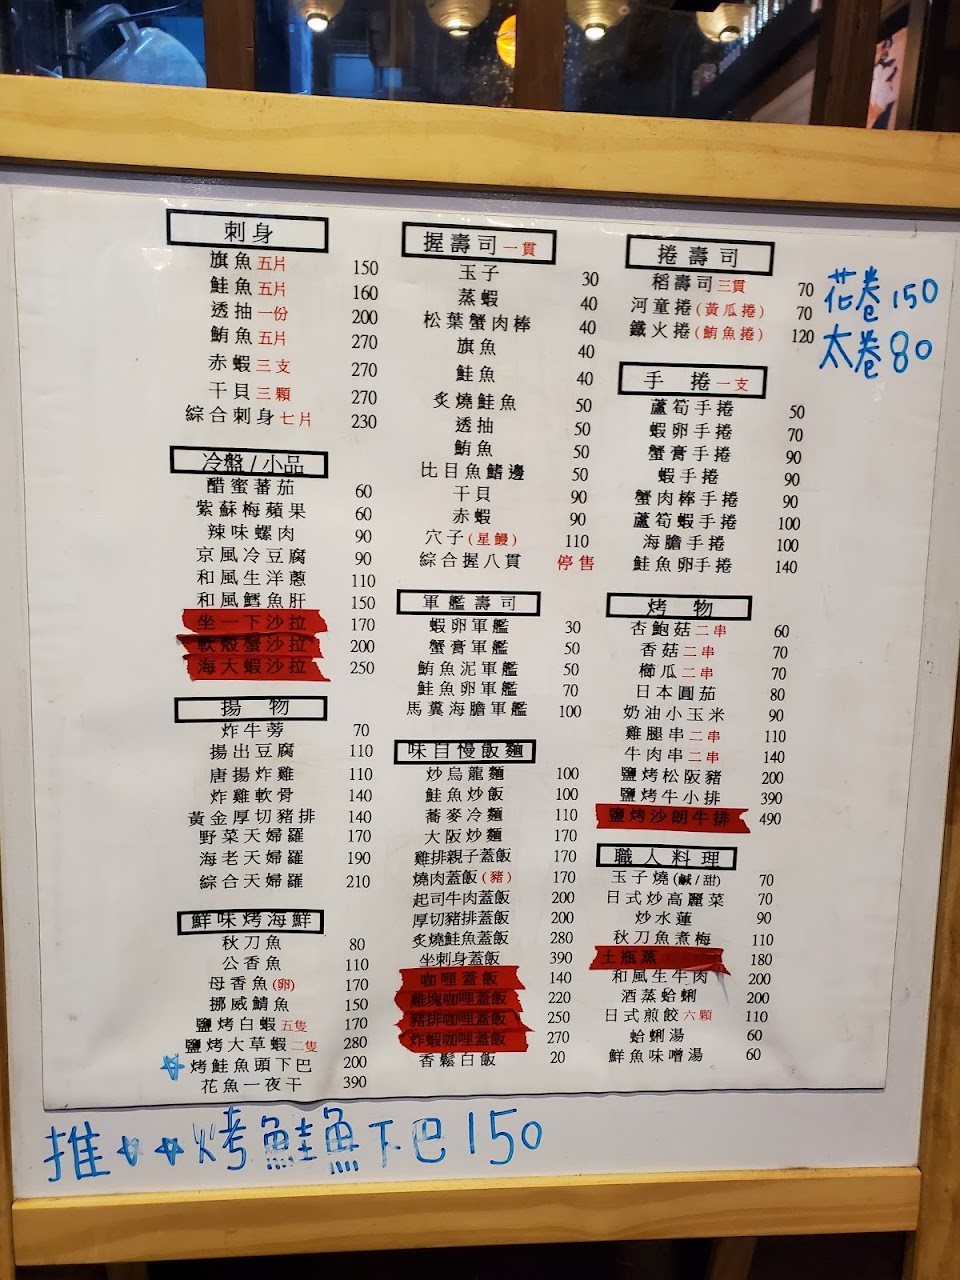 刺身
旗魚五片 150
鮭魚五片 160
透抽一份 200
鮪魚五片 270
赤蝦三支 270
干貝三顆 270
綜合刺身七片 230
冷盤/小品
醋蜜蕃茄 60
紫蘇梅蘋果 60
辣味螺肉 90
京風冷豆腐 90
和風生洋蔥 110
和風鱈魚肝 150
坐一下沙拉 170
軟殼蟹沙拉 200
海大蝦沙拉 250
揚物
炸牛蒡 70
揚出豆腐 110
唐揚炸雞 110
炸雞軟骨 140
黃金厚切豬排 140
野菜天婦羅 170
海老天婦羅 190
綜合天婦羅 210
鮮味烤海鮮
秋刀魚 80
公香魚 110
母香魚(卵) 170
挪威鯖魚 150
鹽烤白蝦五隻 170
鹽烤大草蝦二隻 280
烤鮭魚頭下巴 200
花魚一夜干 390
握壽司一貫
玉子 30
蒸蝦 40
松葉蟹肉棒 40
旗魚 40
鮭魚 40
炙燒鮭魚 50
透抽 50
鮪魚 50
比目魚鰭邊 50
干貝 90
赤蝦 90
穴子(星鰻) 110
綜合握八貫 停售
軍艦壽司
蝦卵軍艦 30
蟹膏軍艦 50
鮪魚泥軍艦 50
鮭魚卵軍艦 70
馬糞海膽軍艦 100
味自慢飯麵
炒烏龍麵 100
鮭魚炒飯 100
蕎麥冷麵 110
大阪炒麵 170
雞排親子蓋飯 170
燒肉蓋飯(豬) 170
起司牛肉蓋飯 200
厚切豬排蓋飯 200
炙燒鮭魚蓋飯 280
坐刺身蓋飯 390
咖哩蓋飯 140
雞塊咖哩蓋飯 220
豬排咖哩蓋飯 250
炸蝦咖哩蓋飯 270
香鬆白飯 20
捲壽司
稻壽司三貫 70
河童捲(黃瓜捲) 70
鐵火捲(鮪魚捲) 120
手捲一支
蘆筍手捲 50
蝦卵手捲 70
蟹膏手捲 90
蝦手捲 90
蟹肉棒手捲 90
蘆筍蝦手捲 100
海膽手捲 100
鮭魚卵手捲 140
烤物
杏鮑菇二串 60
香菇二串 70
櫛瓜二串 70
日本圓茄 80
奶油小玉米 90
雞腿串二串 110
牛肉串二串 140
鹽烤松阪豬 200
鹽烤牛小排 390
鹽烤沙朗牛排 490
職人料理
玉子燒(鹹/甜) 70
日式炒高麗菜 70
炒水蓮 90
秋刀魚煮梅 110
土瓶蒸 180
和風生牛肉 200
酒蒸蛤蜊 200
日式煎餃六顆 110
蛤蜊湯 60
鮮魚味噌湯 60
花卷150
太卷80
推☆☆烤鮭魚下巴150